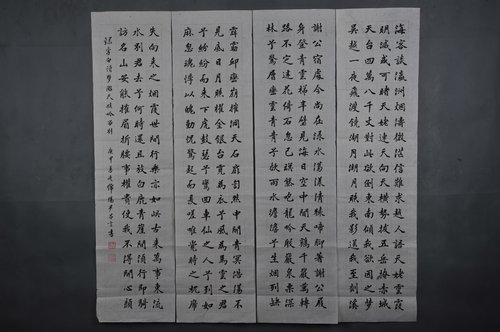 海客談瀛洲烟濤微茫信難求越人語天姥雲霞
明滅或可睹天姥連天向天橫勢拔五岳掩赤城
天台四萬八千丈對此欲倒東南傾我欲因之夢
吳越一夜飛渡鏡湖月湖月照我影送我至剡溪
謝公宿處今尚在淥水蕩漾清猿啼腳著謝公屐
身登青雲梯半壁見海日空中聞天鷄千巖萬轉
路不定迷花倚石忽已暝熊咆龍吟殷巖泉慄深
林兮驚層巔雲青青兮欲雨水澹澹兮生烟列缺
霹靂邱巒崩摧洞天石扇訇然中開青冥浩蕩不
見底日月照耀金銀臺霓爲衣兮風爲馬雲之君
兮紛紛而來下虎鼓瑟兮鸞回車仙之人兮列如
麻忽魂悸以魄動怳驚起而長嗟唯覺時之枕席
失向來之烟霞世間行樂亦如此古來萬事東流
水別君去兮何時還且放白鹿青崖間須行即騎
訪名山安能摧眉折腰事權貴使我不得開心顏
錄李白詩夢遊天姥吟留別